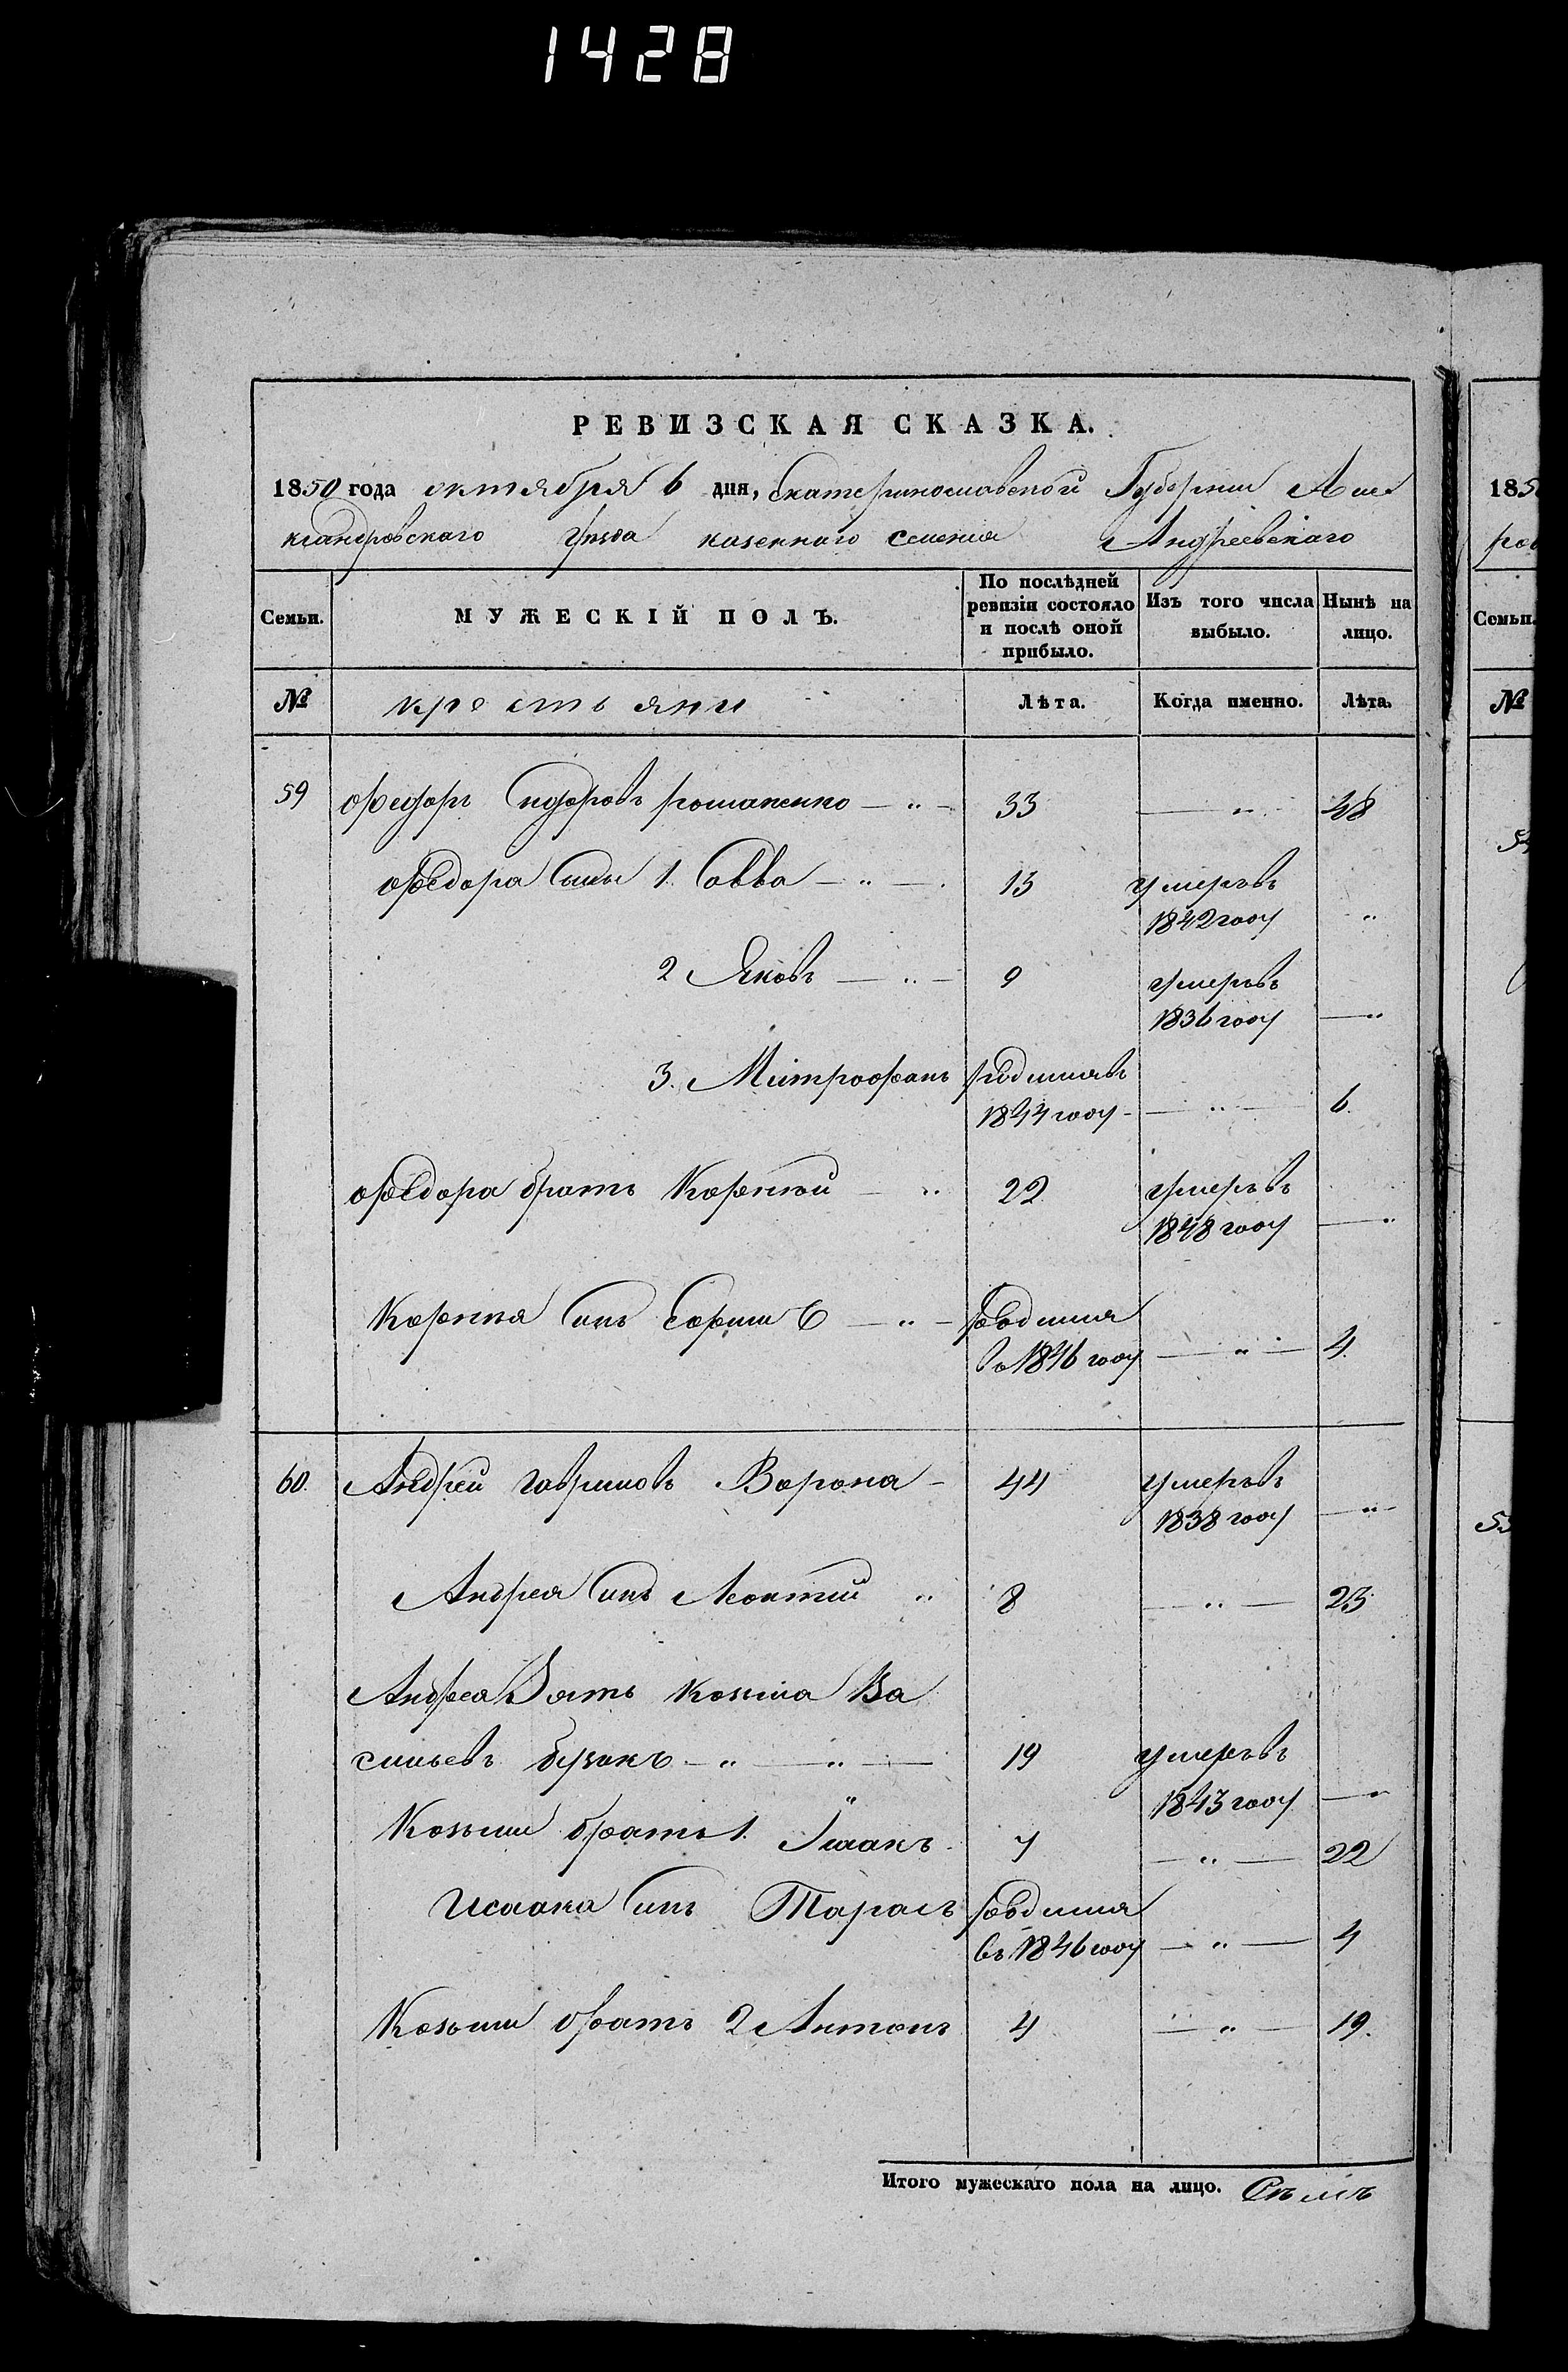 1428
РЕВИЗСКАЯ СКАЗКА.
1850 года октября 6 дня, Екатеринославской Губернии Але
ксандровского уезда казенного селения Андреевскаго
Семьи. МУЖЕСКІЙ ПОЛЪ. По послѣдней ревизіи состояло и послѣ оной прибыло. Изъ того числа выбыло. Нынѣ на лицо.
№ крестьяни Лѣта. Когда именно. Лѣта.
59 Федоръ Сидоровъ романенко — " — 33 — " 48
Федора сины 1. Савва — " — 13 умеръ въ
1842 году "
2 Яковъ — " — 9 умеръ въ
1836 году — "
3. Митрофанъ родился въ
1844 году - — " — 6.
Федора братъ Корнѣй — " 22 умеръ въ
1848 году — "
Корнѣя синъ — " — родился
въ 1846 году — " — 4.
60. Андрей гавриловъ Ворона - 44 умеръ въ
1838 году — " -
Андрея синъ Леонтій " 8 — " — 23
Андрея Зять козьма Ва
сильевъ бузакъ - " — " — 19 умеръ въ
1843 году — "
Козьми братья 1. Ісаакъ 7 — " — 22
Исаака синъ Тарасъ родился
въ 1846 году — " — 4
Козьми братъ 2 Антонъ 4 — " — 19.
Итого мужескаго пола на лицо. Сѣмъ
1850
№